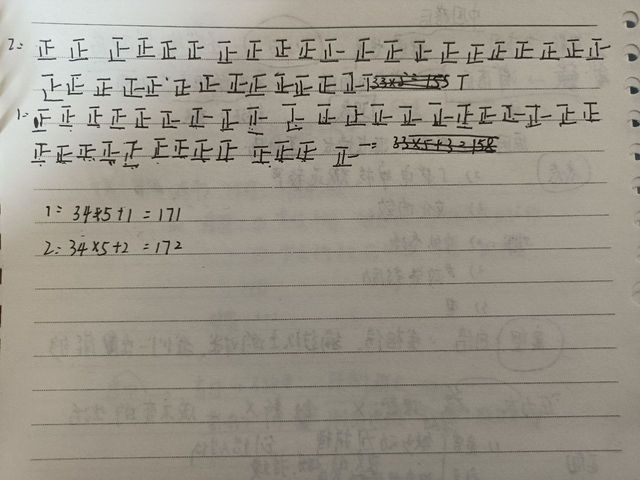 2= 正正正正正正正正正正正正正正正正正正正正正
正正正正正正正正正正正正正 T
1= 正正正正正正正正正正正正正正正正正正正正正
正正正正正正正正正正正正正一= 33×5+3=158
1= 34×5+1=171
2= 34×5+2=172